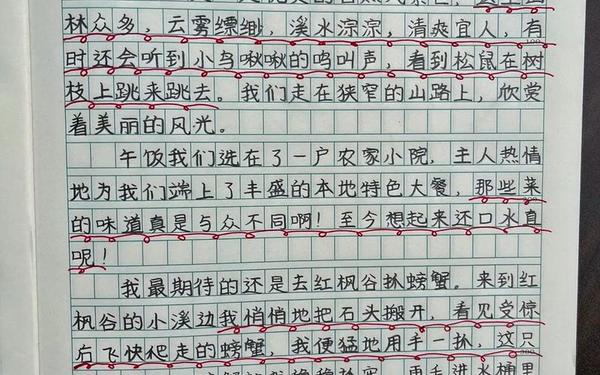 林众多，云雾缥缈，溪水淙淙，清爽宜人，有
时还会听到小鸟啾啾的鸣叫声，看到松鼠在树
枝上跳来跳去。我们走在狭窄的山路上，欣赏
着美丽的风光。
午饭我们选在了一户农家小院，主人热情
地为我们端上了丰盛的本地特色大餐，那些菜
的味道真是与众不同啊！至今想起来还口水直
呢！
我最期待的还是去红枫谷扒螃蟹。来到红
枫谷的小溪边我悄悄地把石头搬开，看见受惊
后飞快爬走的螃蟹，我便猛地用手一扒，这只